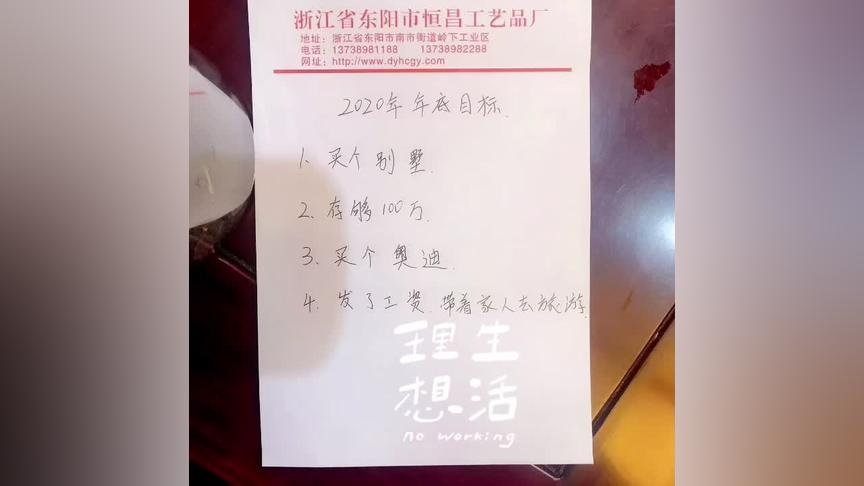 浙江省东阳市恒昌工艺品厂
地址：浙江省东阳市南市街道岭下工业区
电话：13738981188 13738982288
网址：http://www.dyhcgy.com
2020年年底目标.
1、买个别墅.
2、存够100万.
3、买个奥迪.
4、发了工资.带着家人去旅游.
理想生活
no working